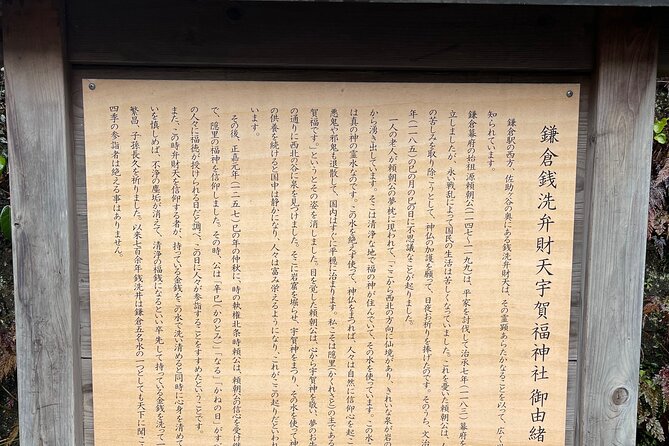 鎌倉銭洗弁財天宇賀福神社 御由緒
鎌倉駅の西方、佐助ヶ谷の奥にある銭洗弁財天は、その霊顕あらたかなることを以て、広く
知られています。
鎌倉幕府の始祖源頼朝公（一一四七～一一九九）は、平家を討伐して治承七年（一一八三）幕府を
立しましたが、永い戦乱によって国民の生活は苦しくなっていました。これを憂いた頼朝公は、
の苦しみを取り除こうとして、神仏の加護を願って、日夜お祈りを捧げたのです。そのうち、文治
年（一一八五）の巳の月の巳の日に不思議なことが起りました。
一人の老人が頼朝公の夢枕に現われて、「ここから西北の方向に仙境があり、きれいな泉が岩の
から湧き出しています。そこは清浄な地で福の神が住んでいて、その水を使っています。この水
は真の神の霊水なのです。この水を絶えず使って、神仏をまつれば、人々は自然に信仰心を起こ
悪鬼や邪鬼も退散して、国内はすぐに平穏に治まります。私こそは隠里（かくれざと）の主である
賀福です。」というとその姿を消しました。目を覚した頼朝公は、心から宇賀神を敬い、夢のお
の通りに西北の谷に泉を見つけました。そこに岩窟を掘らせ、宇賀神をまつり、その水を使って神
の供養を続けると国中は静かになり、人々は富み栄えるようになり、これがこの起りだといわれ
います。
その後、正嘉元年（一二五七）巳の年の仲秋に、時の執権北条時頼公は、頼朝公の信心を受け継
で、隠里の福神を信仰しました。その時、公は「辛巳（かのとみ）」「なる「かねの日」がす
の人々に福徳が授けられる日だと調べ、この日に人々が参詣することをすすめたということです。
また、この時弁財天を信仰する者が、持っている金銭を、この水で洗い清めると同時に心身を清めて
いを慎しめば、不浄の塵垢が消えて、清浄の福銭になるといい卒先して持っている金銭を洗って一
繁昌、子孫長久を祈りました。以来七百余年銭洗井は鎌倉五名水の一つとしても天下に聞こ
四季の参詣者は絶える事はありません。